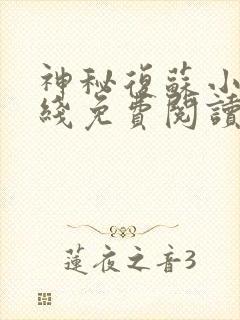 神秘復蘇小
綫免費閱讀
蓮夜之音3